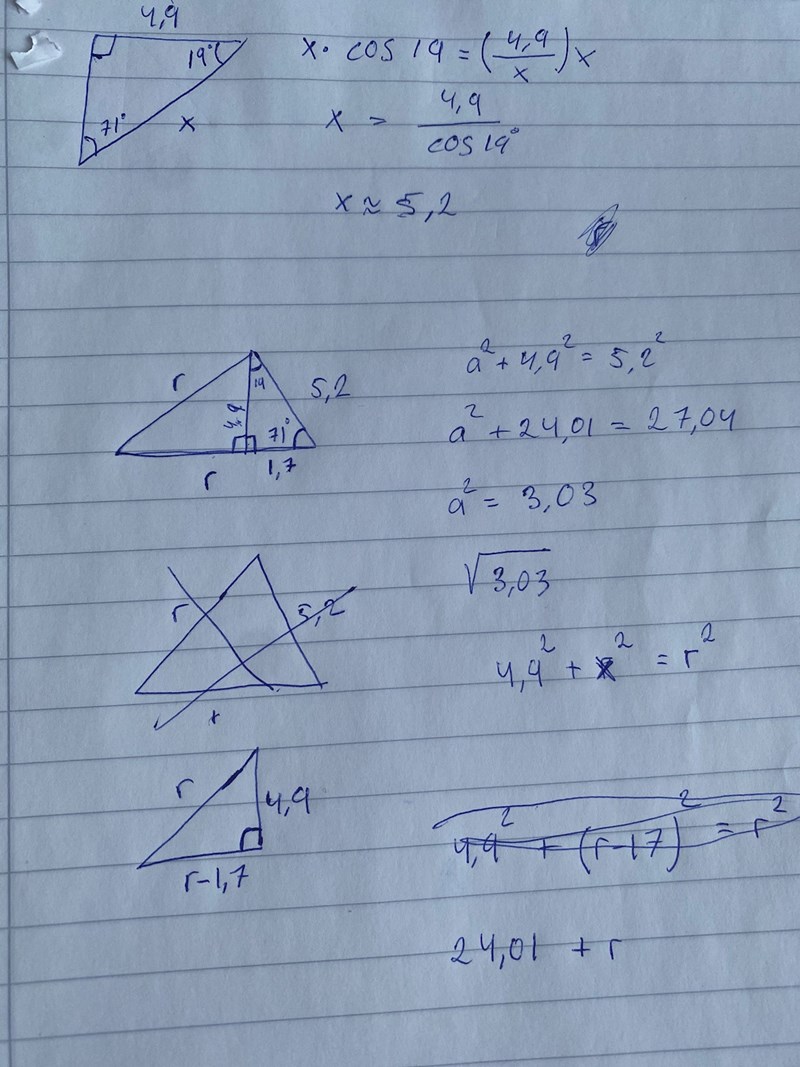 4,9
19°
71°
x
x · cos 19 = (4,9/x) x
x = 4,9/cos 19°
x ≈ 5,2
r
19
5,2
4,9
71°
r
1,7
a² + 4,9² = 5,2²
a² + 24,01 = 27,04
a² = 3,03
√3,03
r
5,2
4,9² + x² = r²
r
4,9
r-1,7
4,9² + (r-1,7)² = r²
24,01 + r